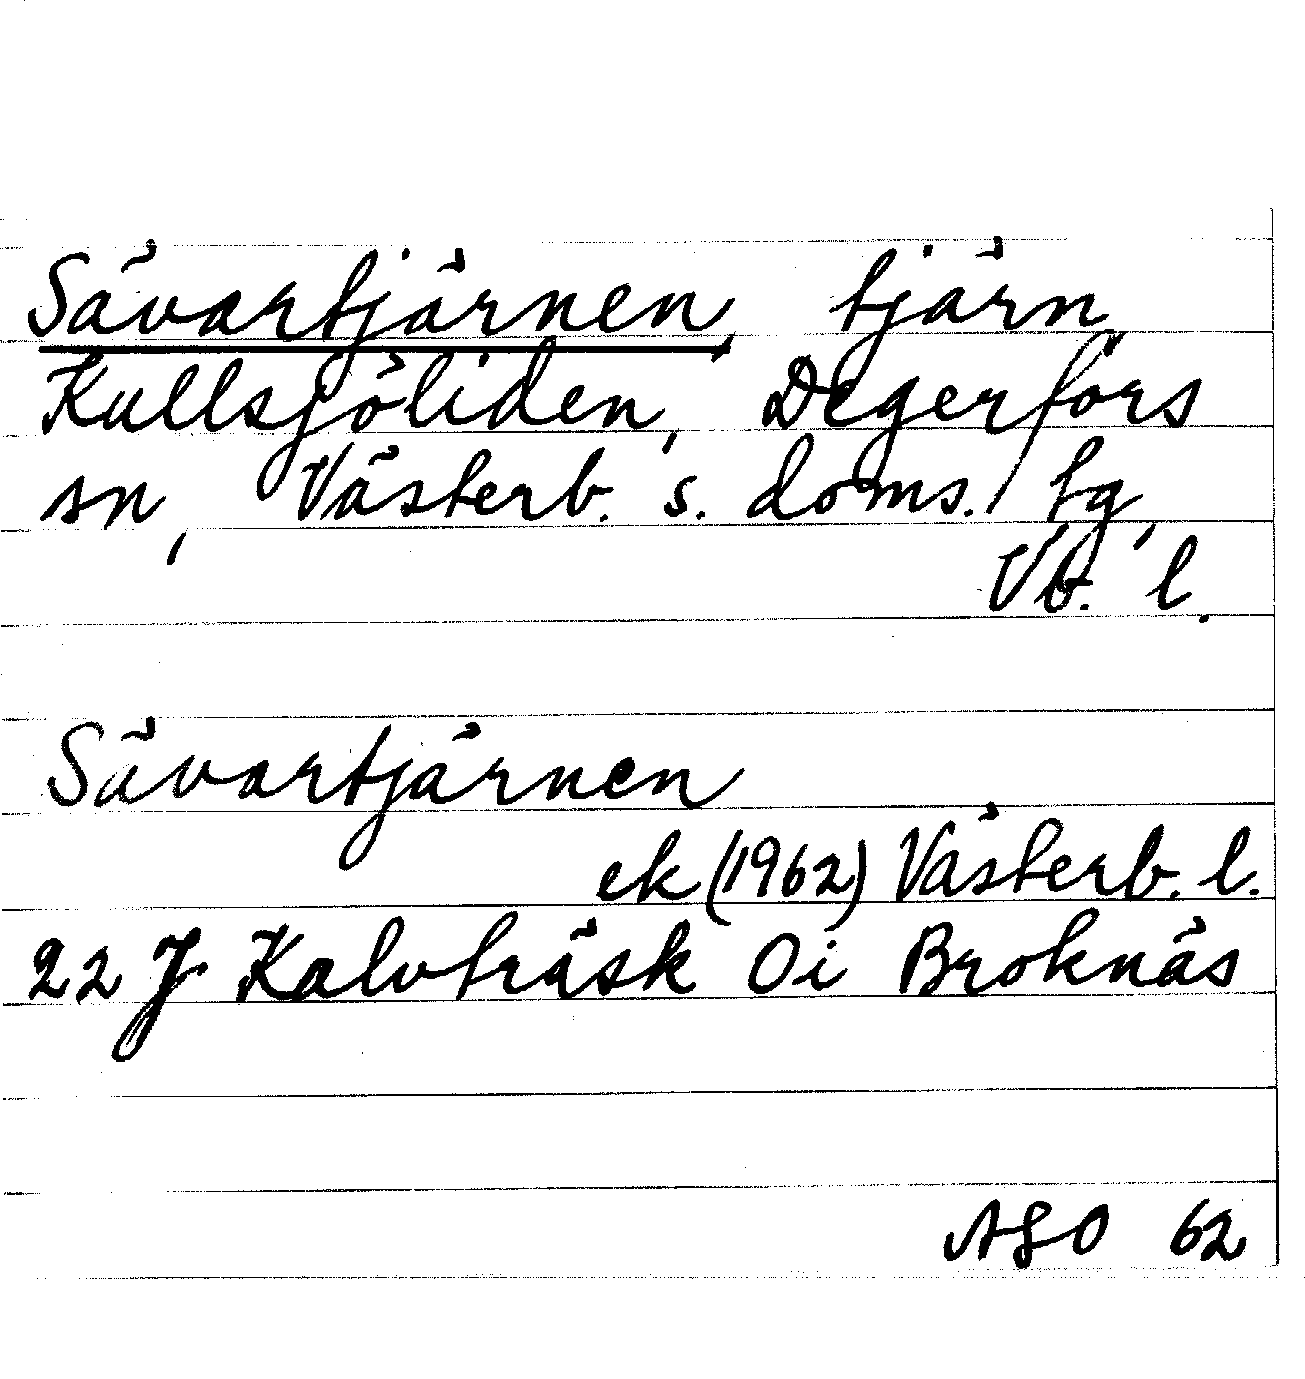 Sävartjärnen, tjärn,
Kullsjöliden, Degerfors
sn, Västerb. s. doms. tg,
Vb. l.
Sävartjärnen
ek (1962) Västerb. l.
22 J Kalvträsk 0i Broknäs
AGO 62